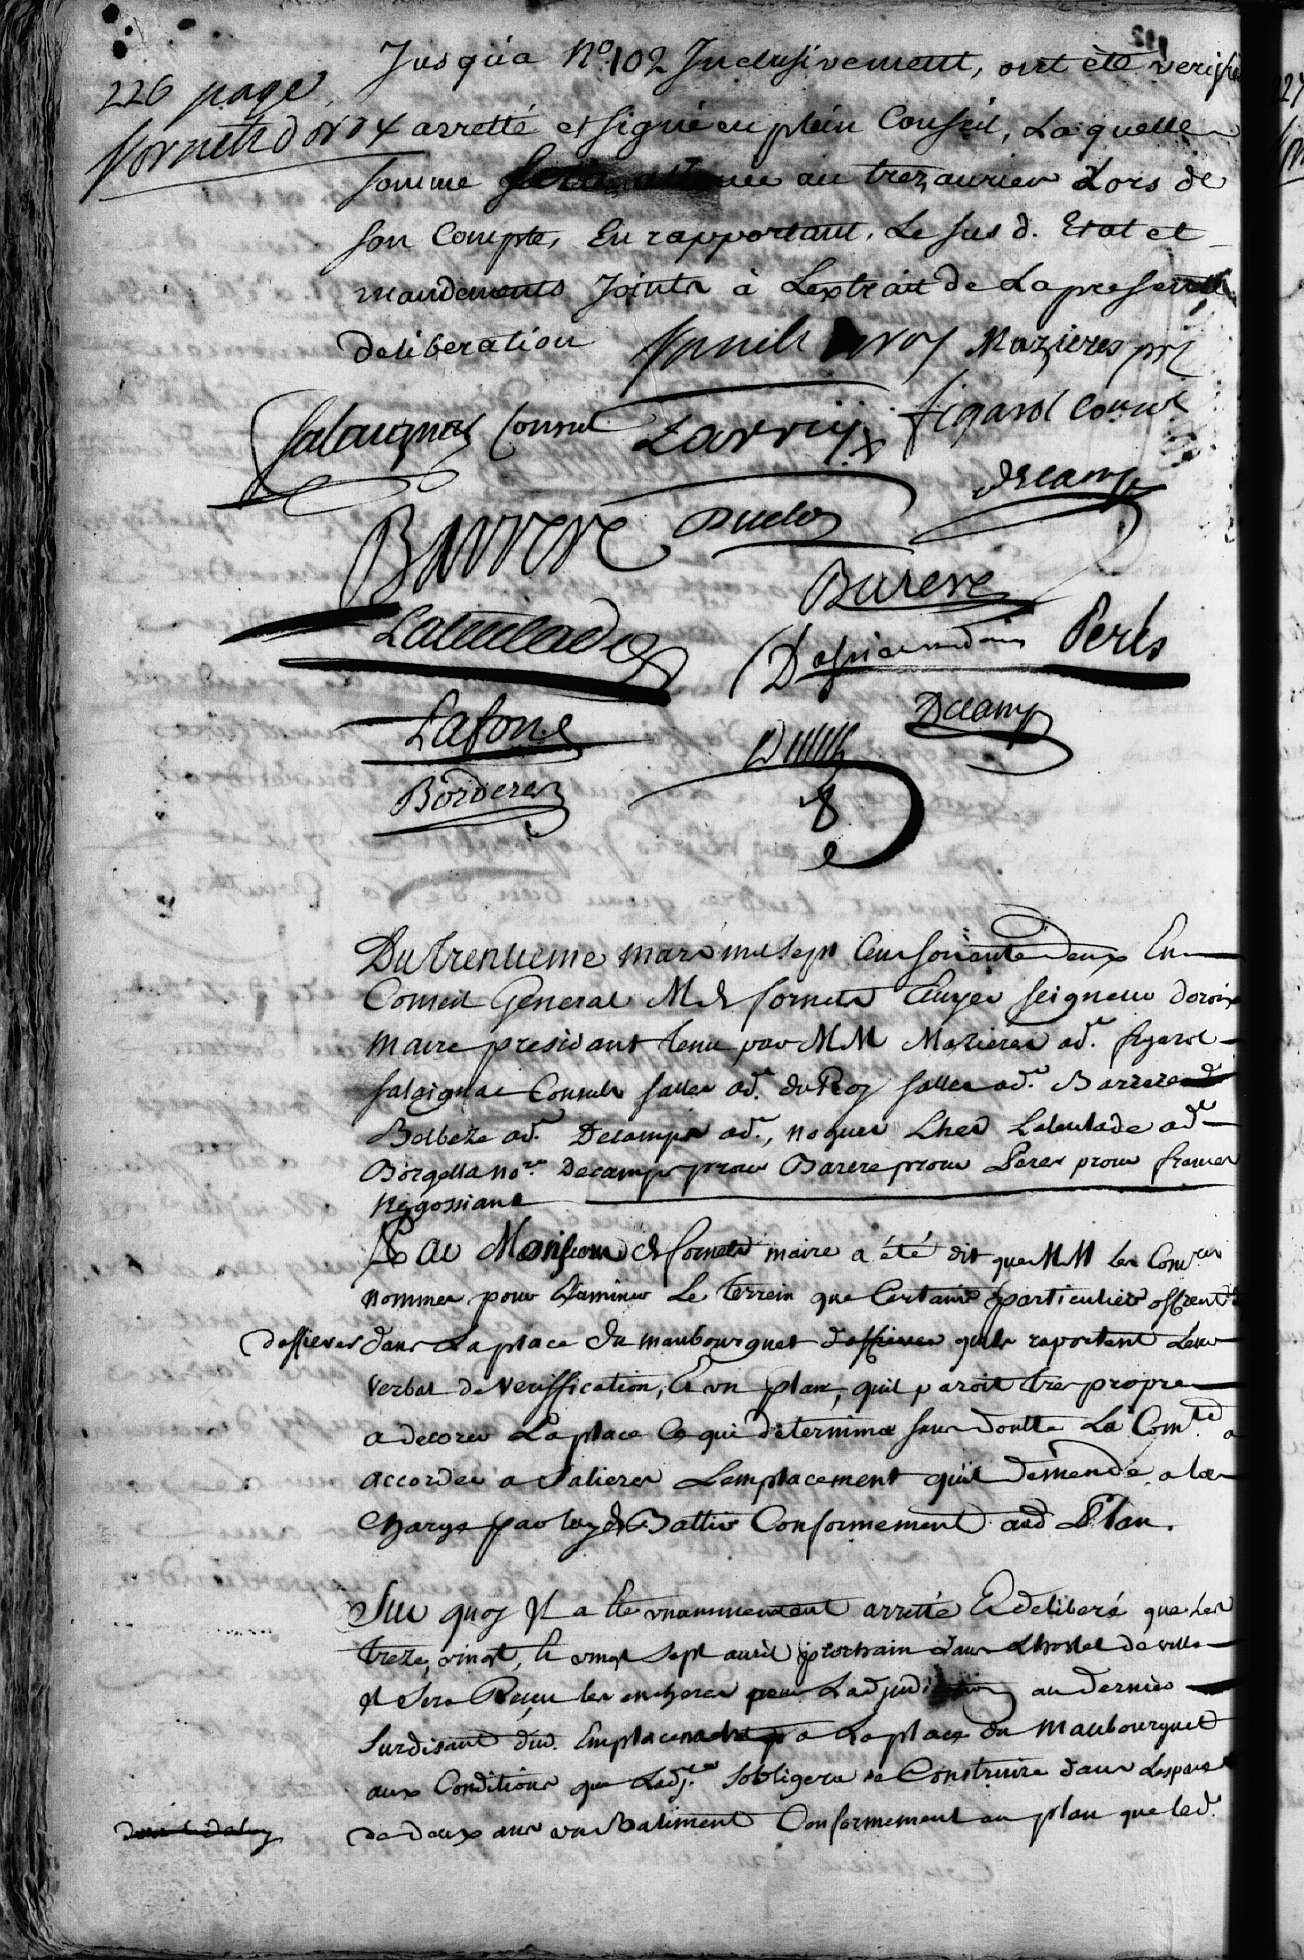 226 page
fornets d'oroix
Jusqu'a N.º 102 Inclusivement, ont été verifié
arretté et signé en plein Conseil, Laquelle
somme sera allouée au trezaurier Lors de
son Compte, En rapportant, Le sus d. Etat et
mandements Joints à Lextrait de La presente
deliberation
Mazieres
Salaignac Consul Larriu figarol Consul
Barrere Duclos Descamps
Barere
Lateulade Perés
Lafone Decamps
Borderes
Du trentieme mars mil sept Cens soixante deux En
Conseil General M. de fornets Ecuyer seigneur doroix
maire president tenu par MM Mazieres ad.t figarol
salaignac Consuls salles ad.t du Roy salles ad.t Barrere
Bolbeze ad.t Decamps ad.t, noguez Lhez Lateulade ad.t
Borgella no.re Decamps procu Barere procu Peres procu
negossians
Par Monsieur de fornets maire a été dit que MM les Com.res
nommes pour Examiner Le terrein que Certains particuliers offrent
daffiever dans La place du maubourguet daffiever quils raportent Leur
verbal de veriffication, & un plan, quil paroit tres propre
a decorer La place Ce qui determinera sans doutte La Com.té a
accorder a Salieres Lemplacement quil demende a la
Charge par luy de Battir Conformement aud Plan.
Sur quoy Il a ete unanimement arretté & deliberé que les
treze, vingt, & vingt sept avril prochain dans Lhostel de ville
Il Sera Reçeu les encheres pour Ladjudication au dernier
Surdisant dud. Emplacement a La place du Maubourguet
aux Conditions que Ladj.re sobligera de Construire dans Lespace
de deux ans un Batiment Conformement au plan que led.